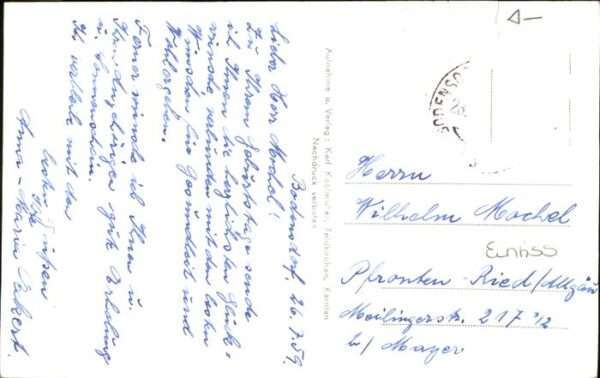 Bodensdorf, 26.7.59
Lieber Herr Mochel!
Zu Ihrem Geburtstage sende
ich Ihnen die herzlichsten Glück-
wünsche, verbunden mit den besten
Wünschen für Gesundheit und
Wohlergehen.
Ferner wünsche ich Ihnen u.
gute Erholung
u. Sonnenschein.
Ihr verbleibe mit den
besten Grüßen
Ihre
Anna-Maria Eckert.
Aufnahme u. Verlag: Karl Kesslmeier, Feldkirchen, Kärnten
Nachdruck verboten
BODENSDO
Herrn
Wilhelm Mochel
Einriss
Pfronten-Ried/Allgäu
Meilingerstr. 217 1/2
b/ Mayer